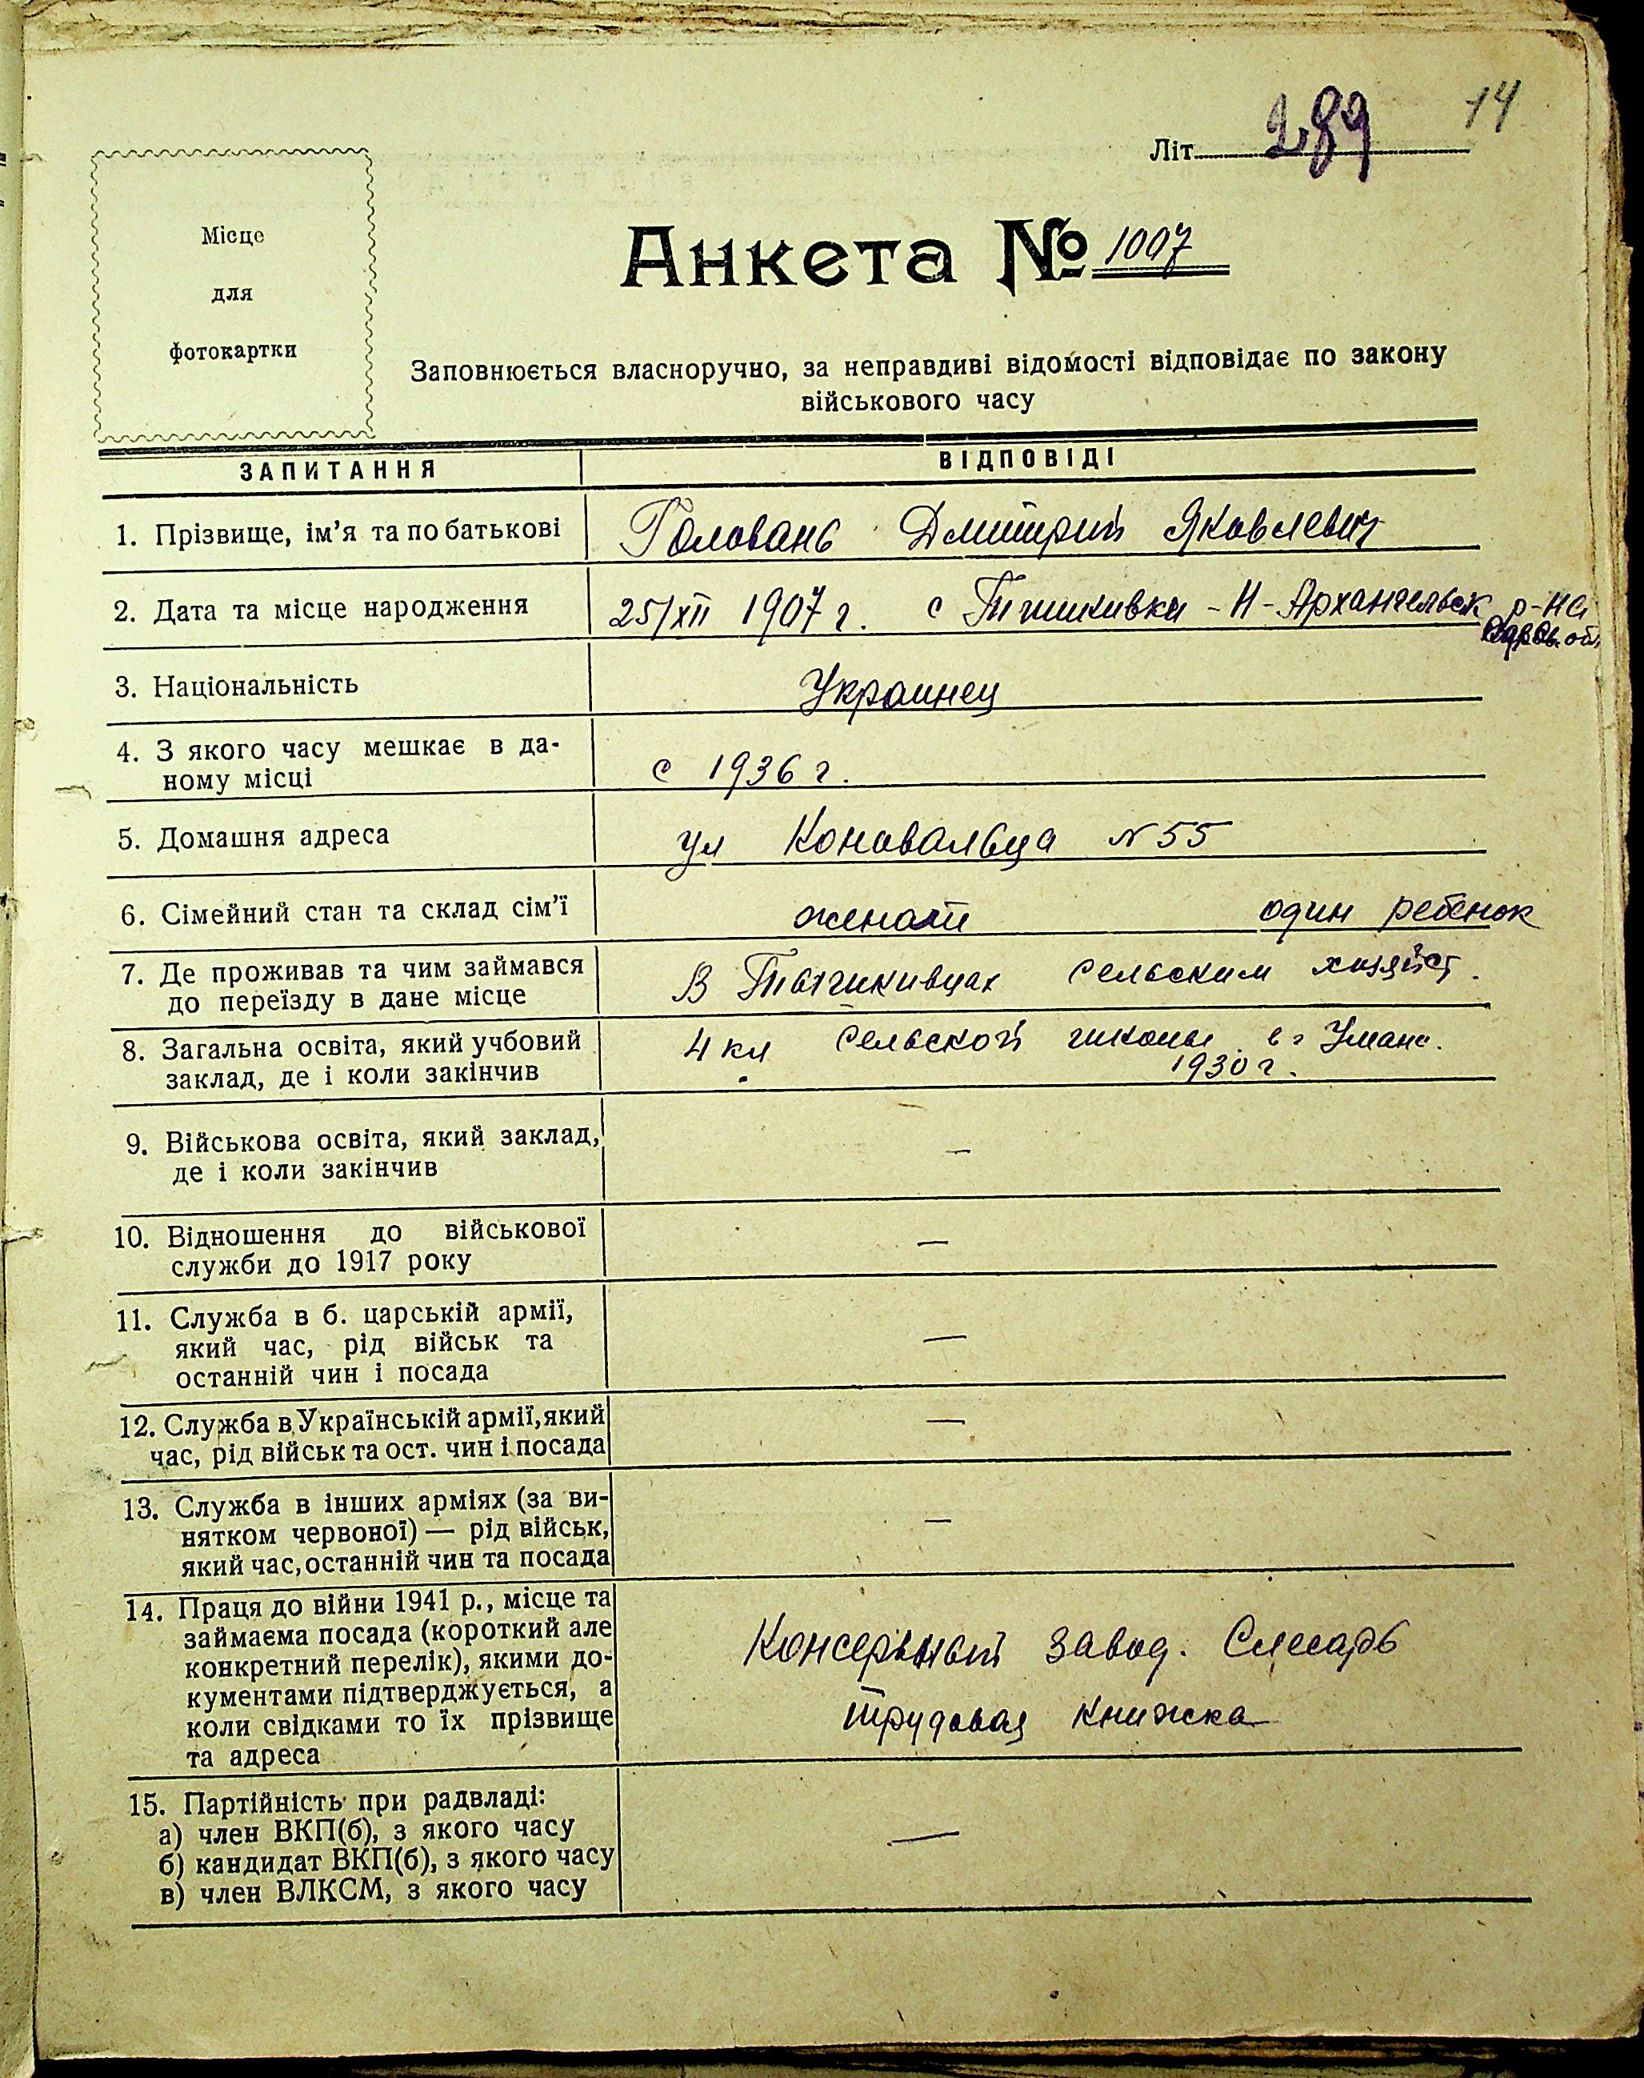 14
Літ. 289
Місце
для
фотокартки
Анкета № 1007
Заповнюється власноручно, за неправдиві відомості відповідає по закону
військового часу
ЗАПИТАННЯ
ВІДПОВІДІ
1. Прізвище, ім’я та по батькові
Головань Дмитрий Яковлевич
2. Дата та місце народження
25/XII 1907 г. с - Н-Архангельск р-на
3. Національність
Украинец
4. З якого часу мешкає в да-
ному місці
с 1936 г.
5. Домашня адреса
ул Коновальца №55
6. Сімейний стан та склад сім’ї
женат один ребенок
7. Де проживав та чим займався
до переїзду в дане місце
В сельским хозяйст.
8. Загальна освіта, який учбовий
заклад, де і коли закінчив
4 кл сельской школы в г Умань.
1930 г.
9. Військова освіта, який заклад,
де і коли закінчив
—
10. Відношення до військової
служби до 1917 року
—
11. Служба в б. царській армії,
який час, рід військ та
останній чин і посада
—
12. Служба в Українській армії, який
час, рід військ та ост. чин і посада
—
13. Служба в інших арміях (за ви-
нятком червоної) — рід військ,
який час, останній чин та посада
—
14. Праця до війни 1941 р., місце та
займаєма посада (короткий але
конкретний перелік), якими до-
кументами підтверджується, а
коли свідками то їх прізвище
та адреса
Консервный завод. Слесарь
трудовая книжка
15. Партійність при радвладі:
а) член ВКП(б), з якого часу
б) кандидат ВКП(б), з якого часу
в) член ВЛКСМ, з якого часу
—